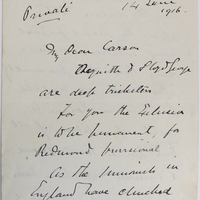 Private
14 June
1916.
My dear Carson
Asquith & Lloyd George
are deep tricksters
For you the Exclusion
is to be permanent, for
Redmond provisional
As the Unionists in
England have clinched